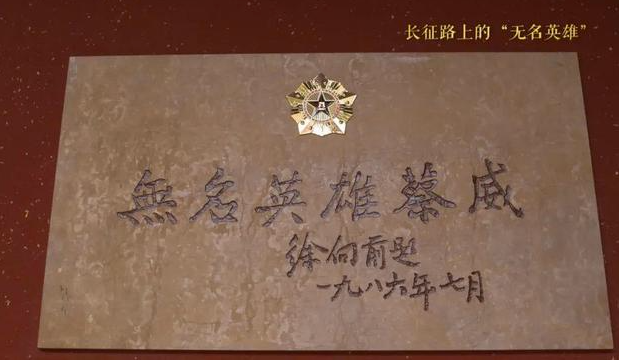 长征路上的“无名英雄”
無名英雄蔡威
徐向前题
一九八六年七月